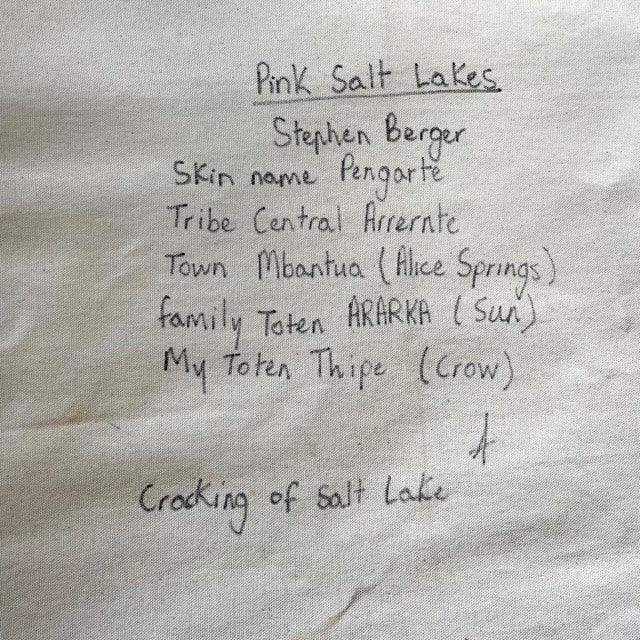 Pink Salt Lakes
Stephen Berger
Skin name Pengarte
Tribe Central Arrernte
Town Mbantua (Alice Springs)
family Toten ARARKA (Sun)
My Toten Thipe (Crow)
Cracking of Salt Lake